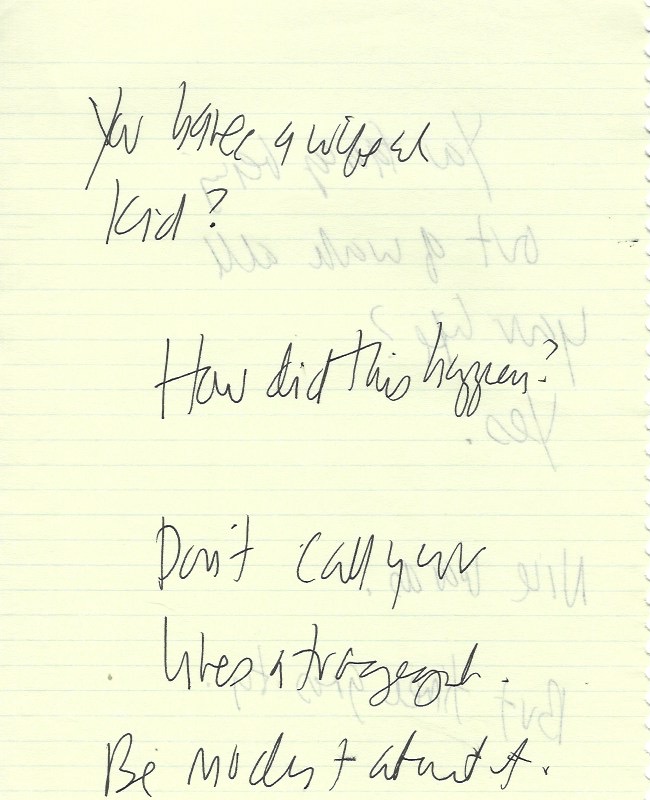 You have a wife and
kid?
How did this happen?
Don't call your
lives a tragedy.
Be modest about it.